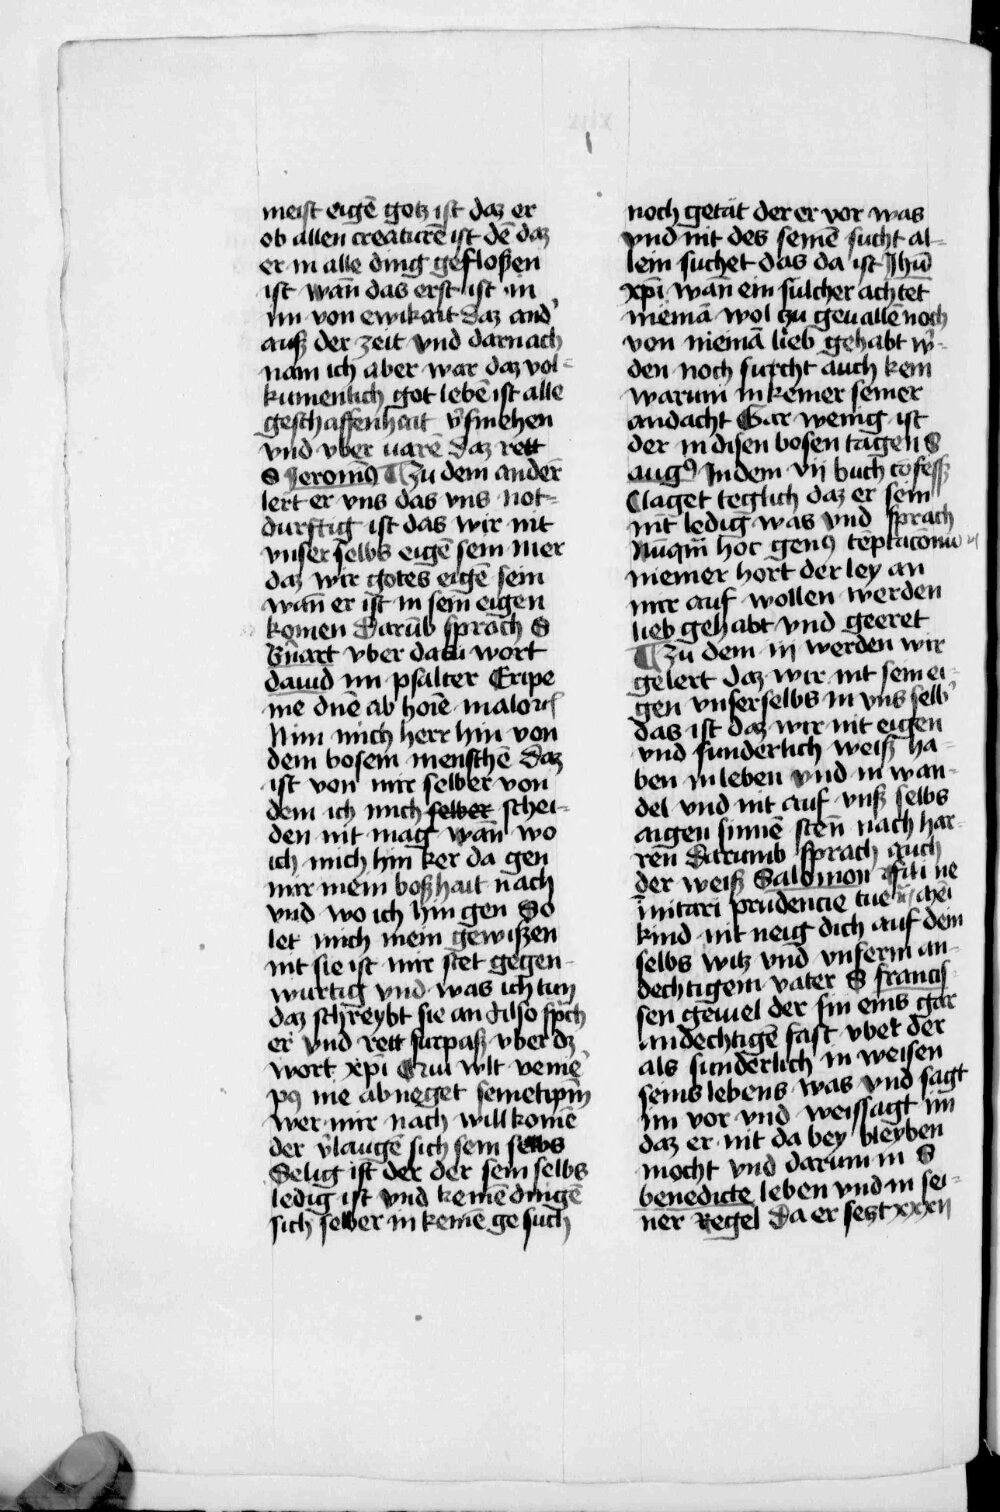 meist eigē gotz ist daz er
ob allen creaturē ist dē daz
er in alle ding gefloßen
ist wān das erst ist in
im von ewikait Daz and'
auß der zeit vnd darnach
nam ich aber war daz vol=
kumenlich got lebē ist alle
geschaffenhait v'smehen
vnd vber uarē Daz rett
S Jeronim9 ¶ Zu dem ander
lert er vns das vns not=
durftig ist das wir nit
vnser selbs eigē sein mer
daz wir gotes eigē sein
wān er ist in sein eigen
komen Darūb sprach S
vber wort
dauid im psalter Eripe
me dnē ab hoīe malo
Nim mich herr hin von
dem bosem menschē Daz
ist von mir selber von
dem ich mich selber schei-
den nit mag wān wo
ich mich hin ker da gen
mir mein boßhait nach
vnd wo ich hin gen So
let mich mein gewißen
nit sie ist mir stet gegen-
wurtig vnd was ich tun
daz schreybt sie an Also sp'ch
er vnd rett furpaß vber dz
wort xp̄i Qui wlt venire
p9 me abneget semetip̄m
wer mir nach will komē
der v'laugē sich sein selbs
Selig ist der der sein selbs
ledig ist vnd keinē dingē
sich selber in keinē gesuch
noch getat der er vor was
vnd nit des seinē sucht al=
lein suchet das da ist Jhū
xp̄i wān ein sulcher achtet
niemā wol zu geuallē noch
von niemā lieb gehabt w'-
den noch furcht auch kein
warum in keiner seiner
andacht Gar wenig ist
der in disen bosen tagen S
aug9 In dem vij buch cōfess
Claget teglich daz er sein
nit ledig was vnd sprach
Nūq̄m hoc gen9 teptacōnum
niemer hort der ley an
mir auf wollen werden
lieb gehabt vnd geeret
¶ Zu dem iij werden wir
gelert daz wir nit sein ei-
gen vnserselbs in vns selb'
das ist daz wir nit eigen
vnd sunderlich weiß ha-
ben in leben vnd in wan-
del vnd nit auf vnß selbs
aigen sinnē stēn nach har-
rēn Darumb sprach auch
der weiß Salomon fili ne
īnitari prudencie tue mei
kind nit neig dich auf dein
selbs witz vnd vnserm an-
dechtigem vater S francis-
sen geuiel der sin eins gar
andechtigē fast vbel der
als sunderlich in weisen
seins lebens was vnd sagt
im vor vnd weissagt im
daz er nit da bey bleyben
mocht vnd darum in S
benedicte leben vnd in sei-
ner Regel Da er seszt xxxij